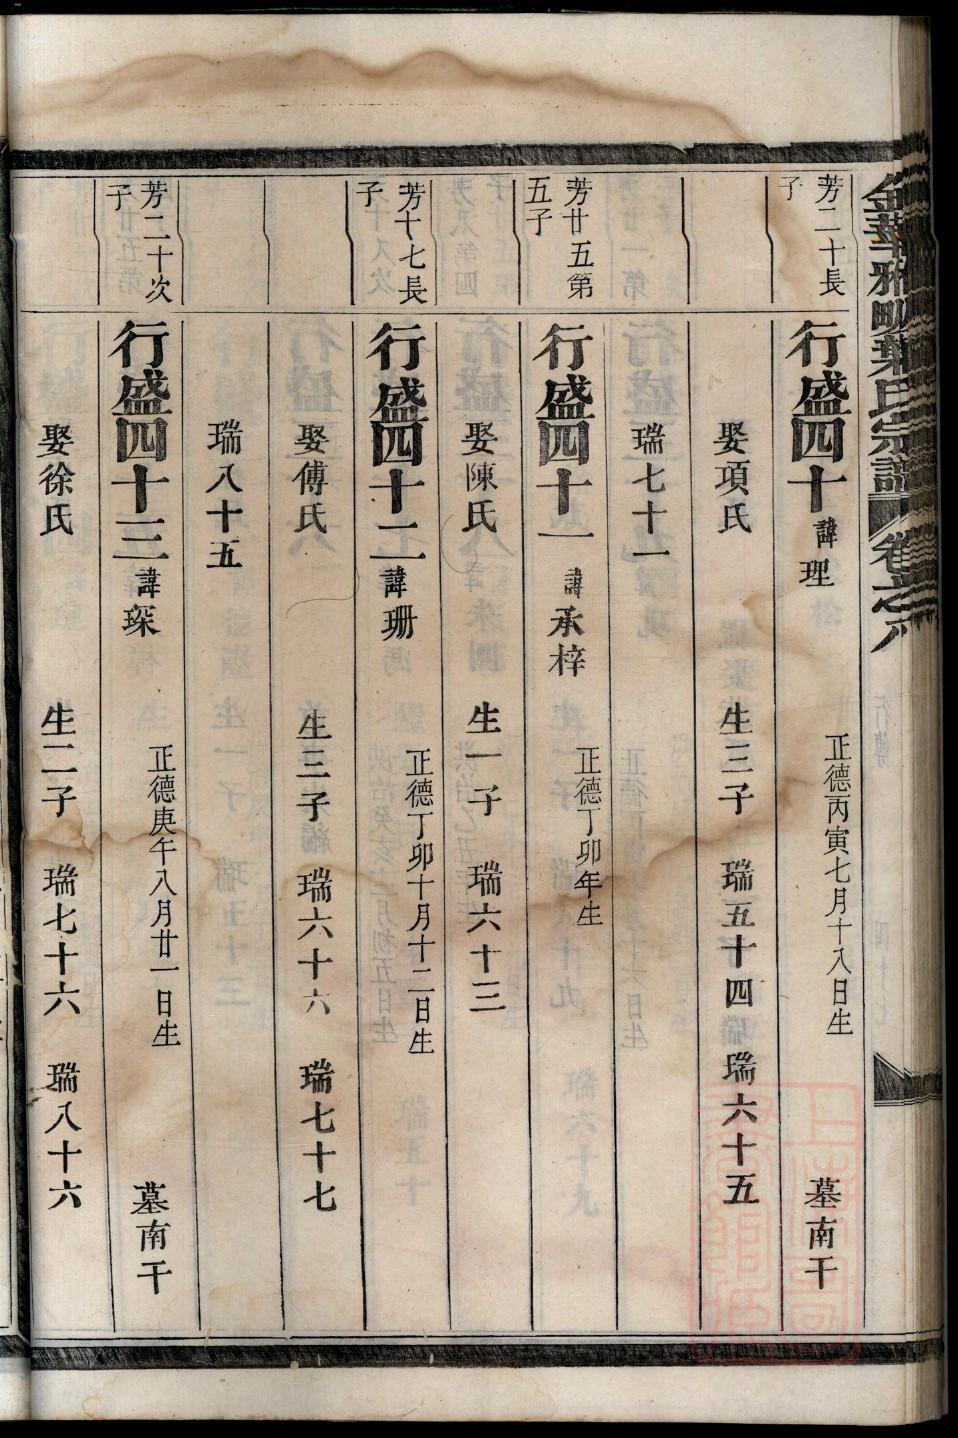 金華雅畈葉氏宗譜 卷之八
芳二十長子
行盛四十 諱理 正德丙寅七月十八日生 墓南干
娶項氏 生三子 瑞五十四 瑞六十五
瑞七十一
芳廿五第五子
行盛四十一 諱承梓 正德丁卯年生
娶陳氏 生一子 瑞六十三
芳十七長子
行盛四十二 諱珊 正德丁卯十月十二日生
娶傅氏 生三子 瑞六十六 瑞七十七
瑞八十五
芳二十次子
行盛四十三 諱琛 正德庚午八月廿一日生 墓南干
娶徐氏 生二子 瑞七十六 瑞八十六